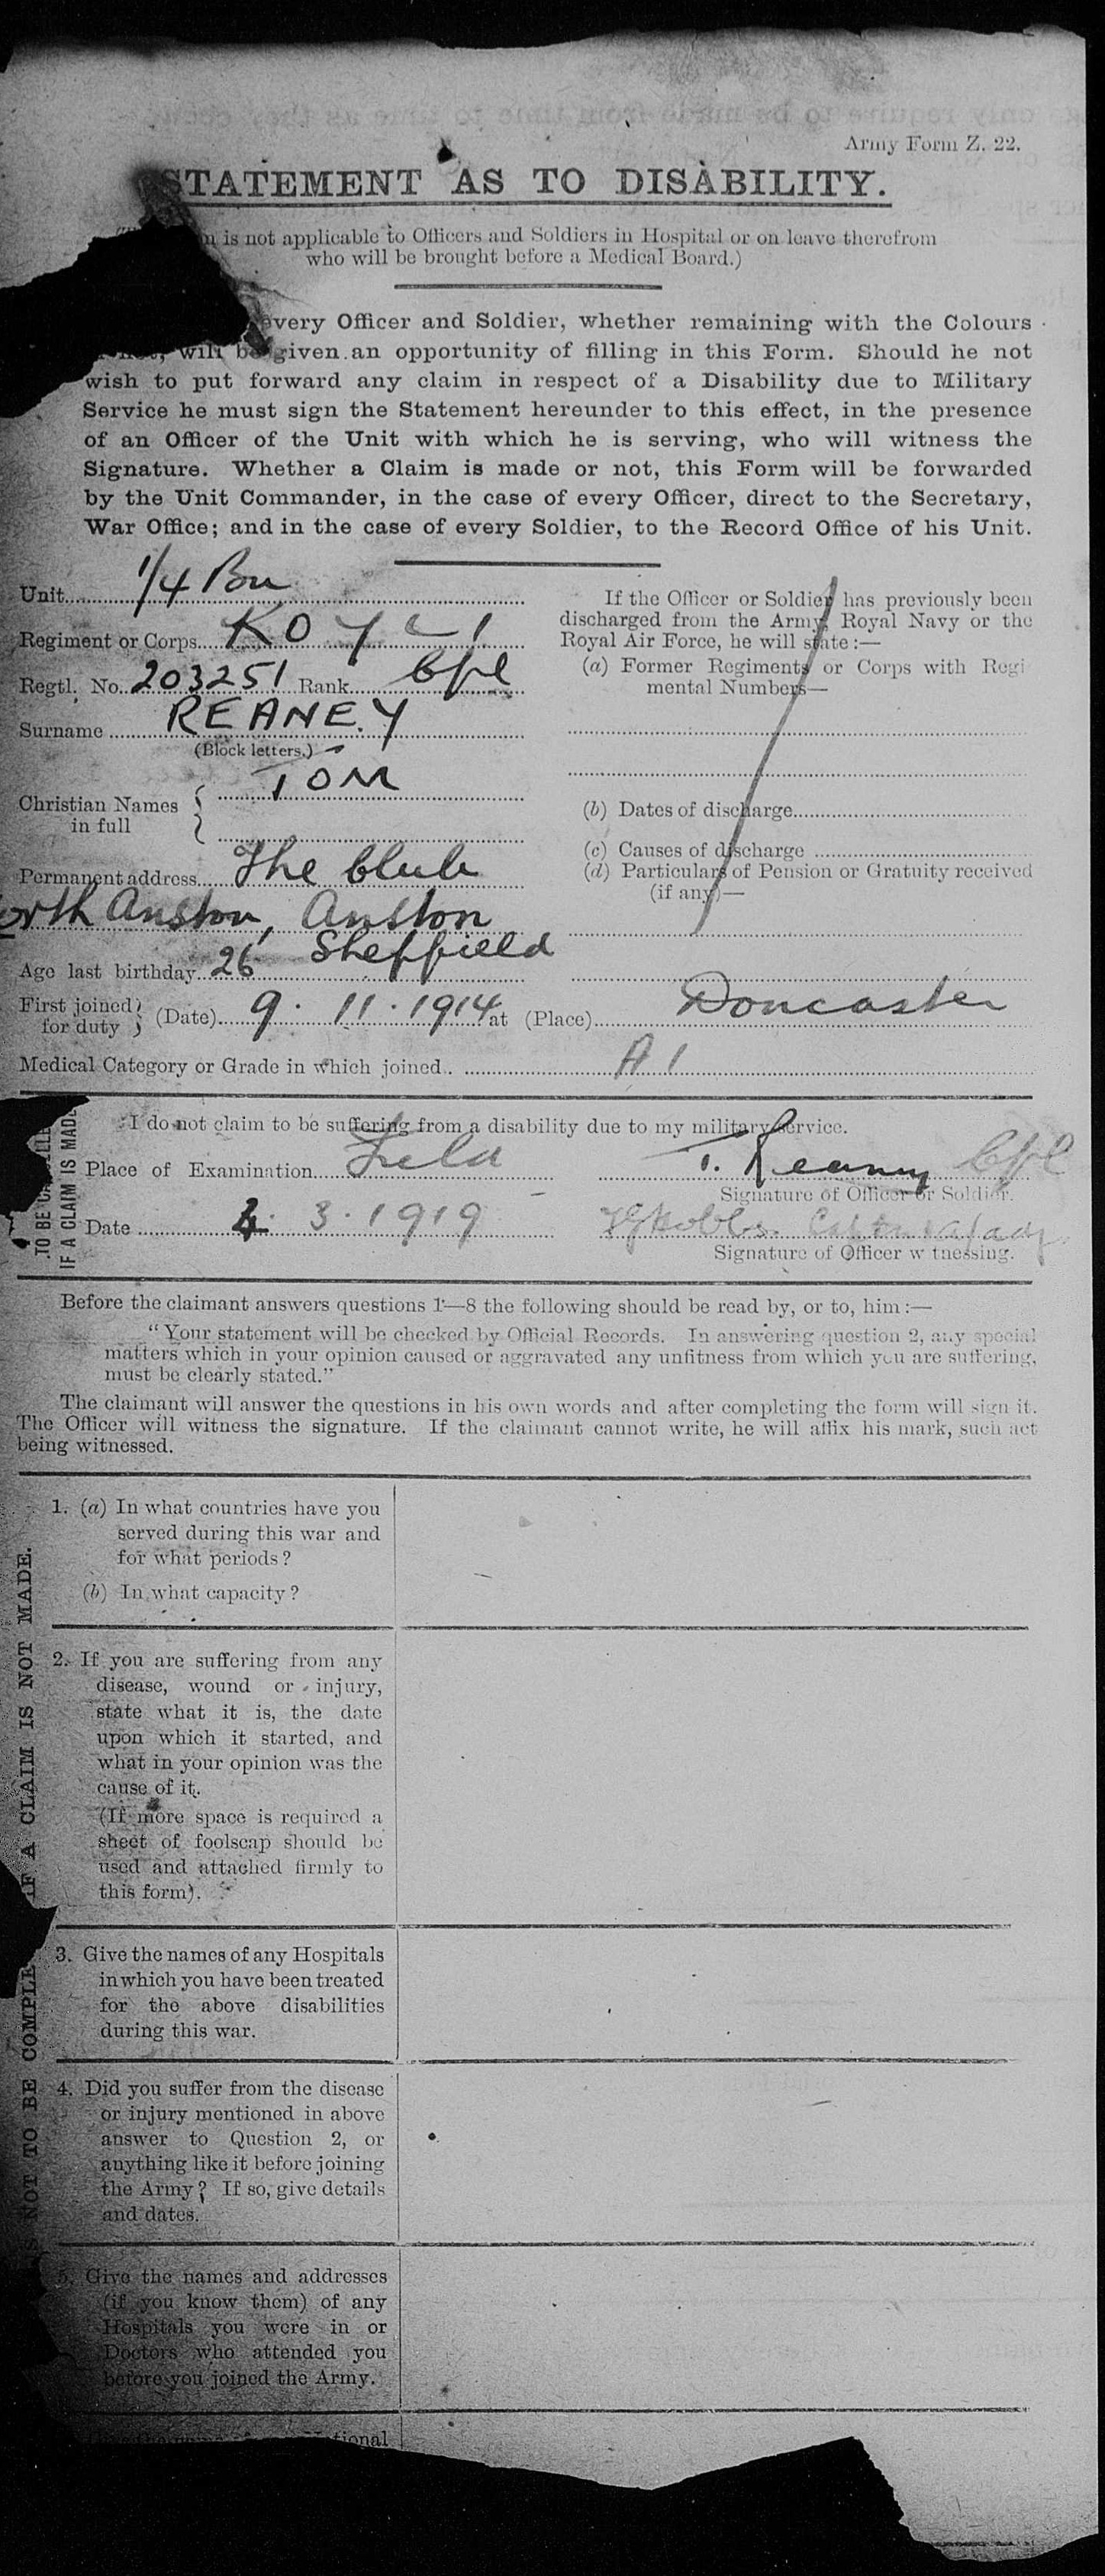 Army Form Z. 22.
STATEMENT AS TO DISABILITY.
is not applicable to Officers and Soldiers in Hospital or on leave therefrom
who will be brought before a Medical Board.)
every Officer and Soldier, whether remaining with the Colours
will be given an opportunity of filling in this Form. Should he not
wish to put forward any claim in respect of a Disability due to Military
Service he must sign the Statement hereunder to this effect, in the presence
of an Officer of the Unit with which he is serving, who will witness the
Signature. Whether a Claim is made or not, this Form will be forwarded
by the Unit Commander, in the case of every Officer, direct to the Secretary,
War Office; and in the case of every Soldier, to the Record Office of his Unit.
Unit 1/4 Bn
Regiment or Corps KOYLI
Regtl. No. 203251 Rank Cpl
Surname REANEY
(Block letters.)
Christian Names in full TOM
Permanent address The Club
orth Anston, Anston
Sheffield
Age last birthday 26
If the Officer or Soldier has previously been
discharged from the Army, Royal Navy or the
Royal Air Force, he will state:—
(a) Former Regiments or Corps with Regi
mental Numbers—
(b) Dates of discharge
(c) Causes of discharge
(d) Particulars of Pension or Gratuity received
(if any)—
First joined for duty (Date) 9. 11. 1914 at (Place) Doncaster
Medical Category or Grade in which joined A 1
TO BE
IF A CLAIM IS MADE
I do not claim to be suffering from a disability due to my military service.
Place of Examination Field T. Reaney Cpl
Signature of Officer or Soldier.
Date 4. 3. 1919
Signature of Officer w tnessing.
Before the claimant answers questions 1—8 the following should be read by, or to, him:—
"Your statement will be checked by Official Records. In answering question 2, any special
matters which in your opinion caused or aggravated any unfitness from which you are suffering,
must be clearly stated."
The claimant will answer the questions in his own words and after completing the form will sign it.
The Officer will witness the signature. If the claimant cannot write, he will affix his mark, such act
being witnessed.
NOT TO BE COMPLE IF A CLAIM IS NOT MADE.
1. (a) In what countries have you
served during this war and
for what periods?
(b) In what capacity?
2. If you are suffering from any
disease, wound or injury,
state what it is, the date
upon which it started, and
what in your opinion was the
cause of it.
(If more space is required a
sheet of foolscap should be
used and attached firmly to
this form).
3. Give the names of any Hospitals
in which you have been treated
for the above disabilities
during this war.
4. Did you suffer from the disease
or injury mentioned in above
answer to Question 2, or
anything like it before joining
the Army? If so, give details
and dates.
5. Give the names and addresses
(if you know them) of any
Hospitals you were in or
Doctors who attended you
before you joined the Army.